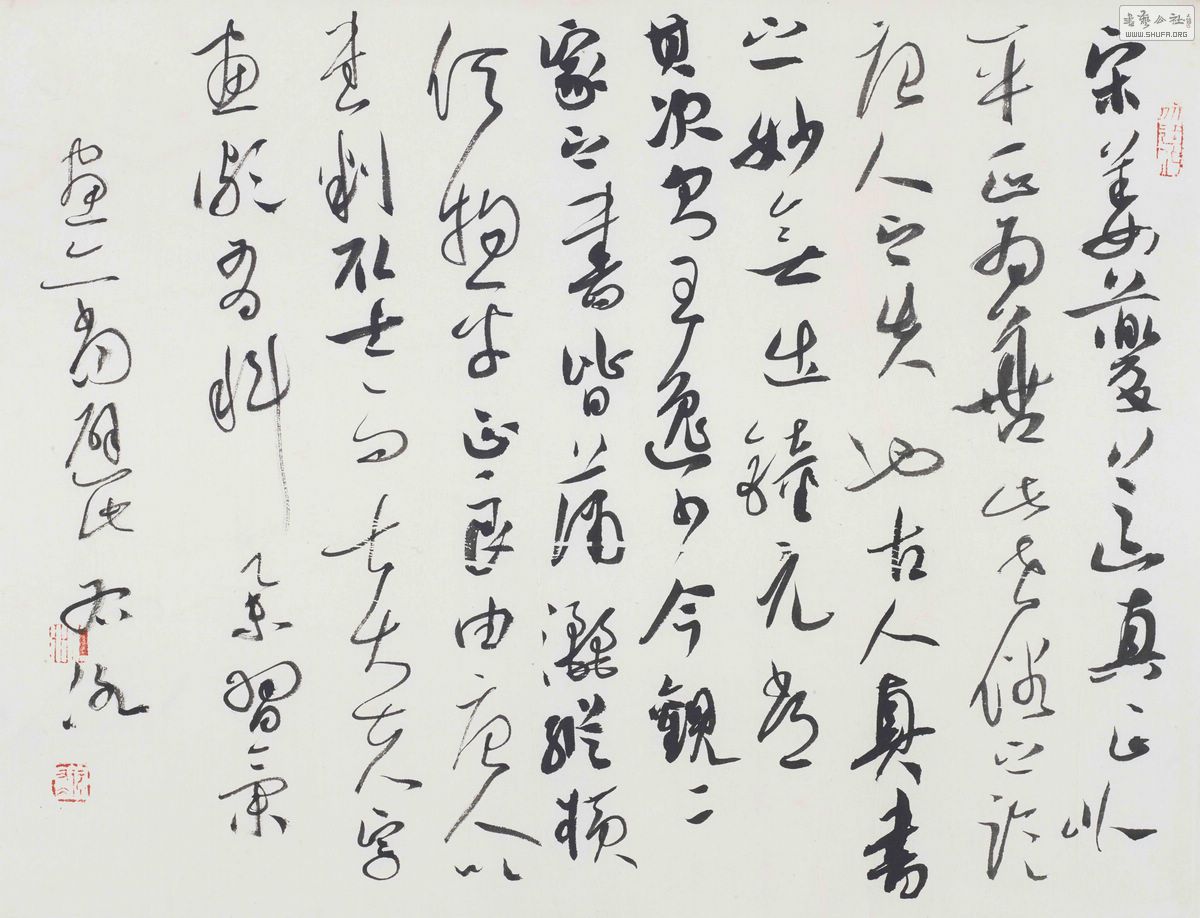 宋姜夔真正以
平正為善此世俗之論
唐人之失也古人真書
之妙無出鍾元常
其次則王逸少今觀二
家之書皆瀟灑縱橫
何拘平正良由唐人以
書判取士而士大夫字
畫頗有科舉習氣
書艺公社
WWW.SHUFA.ORG